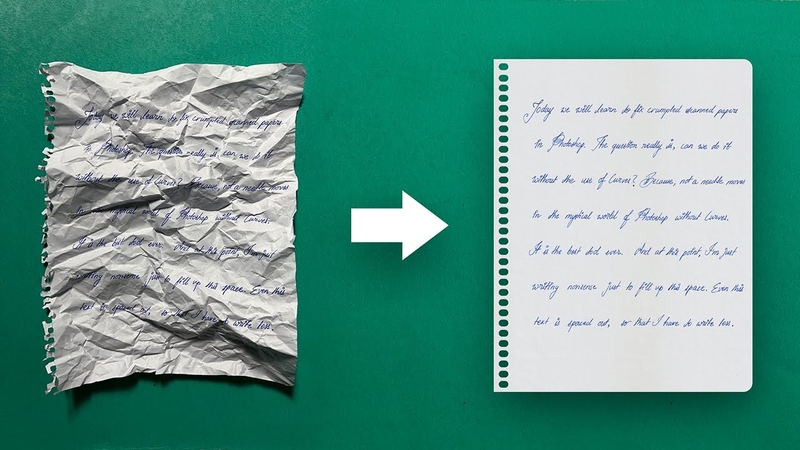 Today we will learn to fix crumpled scanned papers
in Photoshop. The question really is, can we do it
without the use of Curves? Because, not a needle moves
in the mystical world of Photoshop without Curves.
It is the best tool ever. And at this point, I'm just
writing nonsense just to fill up this space. Even this
text is spaced out, so that I have to write less.
Today we will learn to fix crumpled scanned papers
in Photoshop. The question really is, can we do it
without the use of Curves? Because, not a needle moves
in the mystical world of Photoshop without Curves.
It is the best tool ever. And at this point, I'm just
writing nonsense just to fill up this space. Even this
text is spaced out, so that I have to write less.